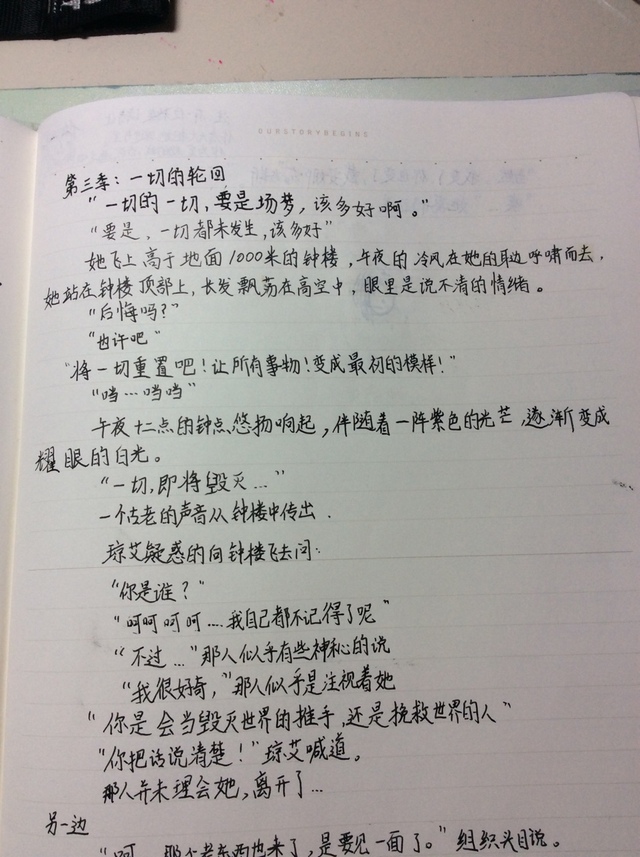 OURSTORYBEGINS
第三季：一切的轮回
“一切的一切，要是场梦，该多好啊。”
“要是，一切都未发生，该多好”
她飞上高于地面1000米的钟楼，午夜的冷风在她的耳边呼啸而去，
她站在钟楼顶部上，长发飘荡在高空中，眼里是说不清的情绪。
“后悔吗？”
“也许吧”
“将一切重置吧！让所有事物！变成最初的模样！”
“当…当当”
午夜十二点的钟点悠扬响起，伴随着一阵紫色的光芒，逐渐变成
耀眼的白光。
“一切，即将毁灭…”
一个古老的声音从钟楼中传出．
琼艾疑惑的向钟楼飞去问：
“你是谁？”
“呵呵呵呵….我自己都不记得了呢”
“不过…”那人似乎有些神秘的说
“我很好奇，”那人似乎是注视着她
“你是会当毁灭世界的推手，还是挽救世界的人”
“你把话说清楚！”琼艾喊道。
那人并未理会她，离开了…
另一边
“呵，那个老东西也来了，是要见一面了。”组织头目说。